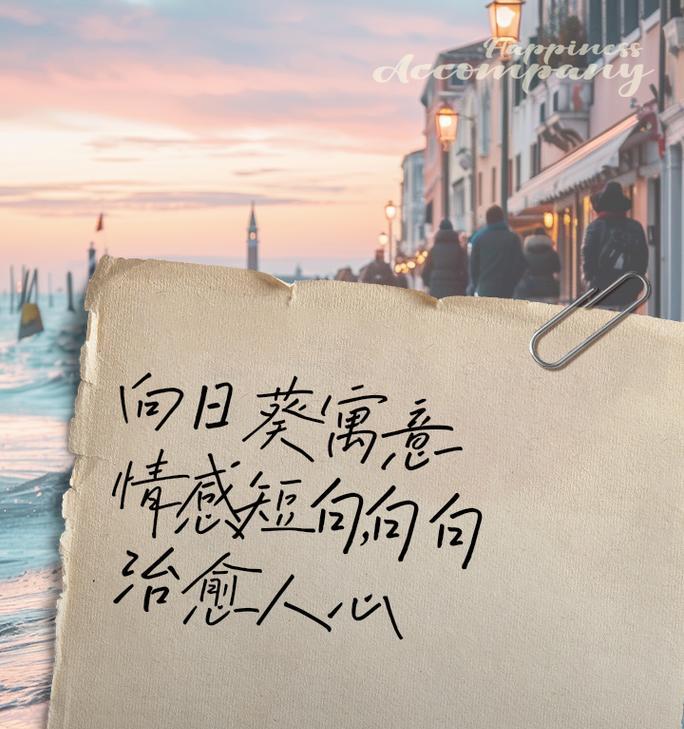 Happiness
Accompany
向日葵寓意
情感短句,句句
治愈人心